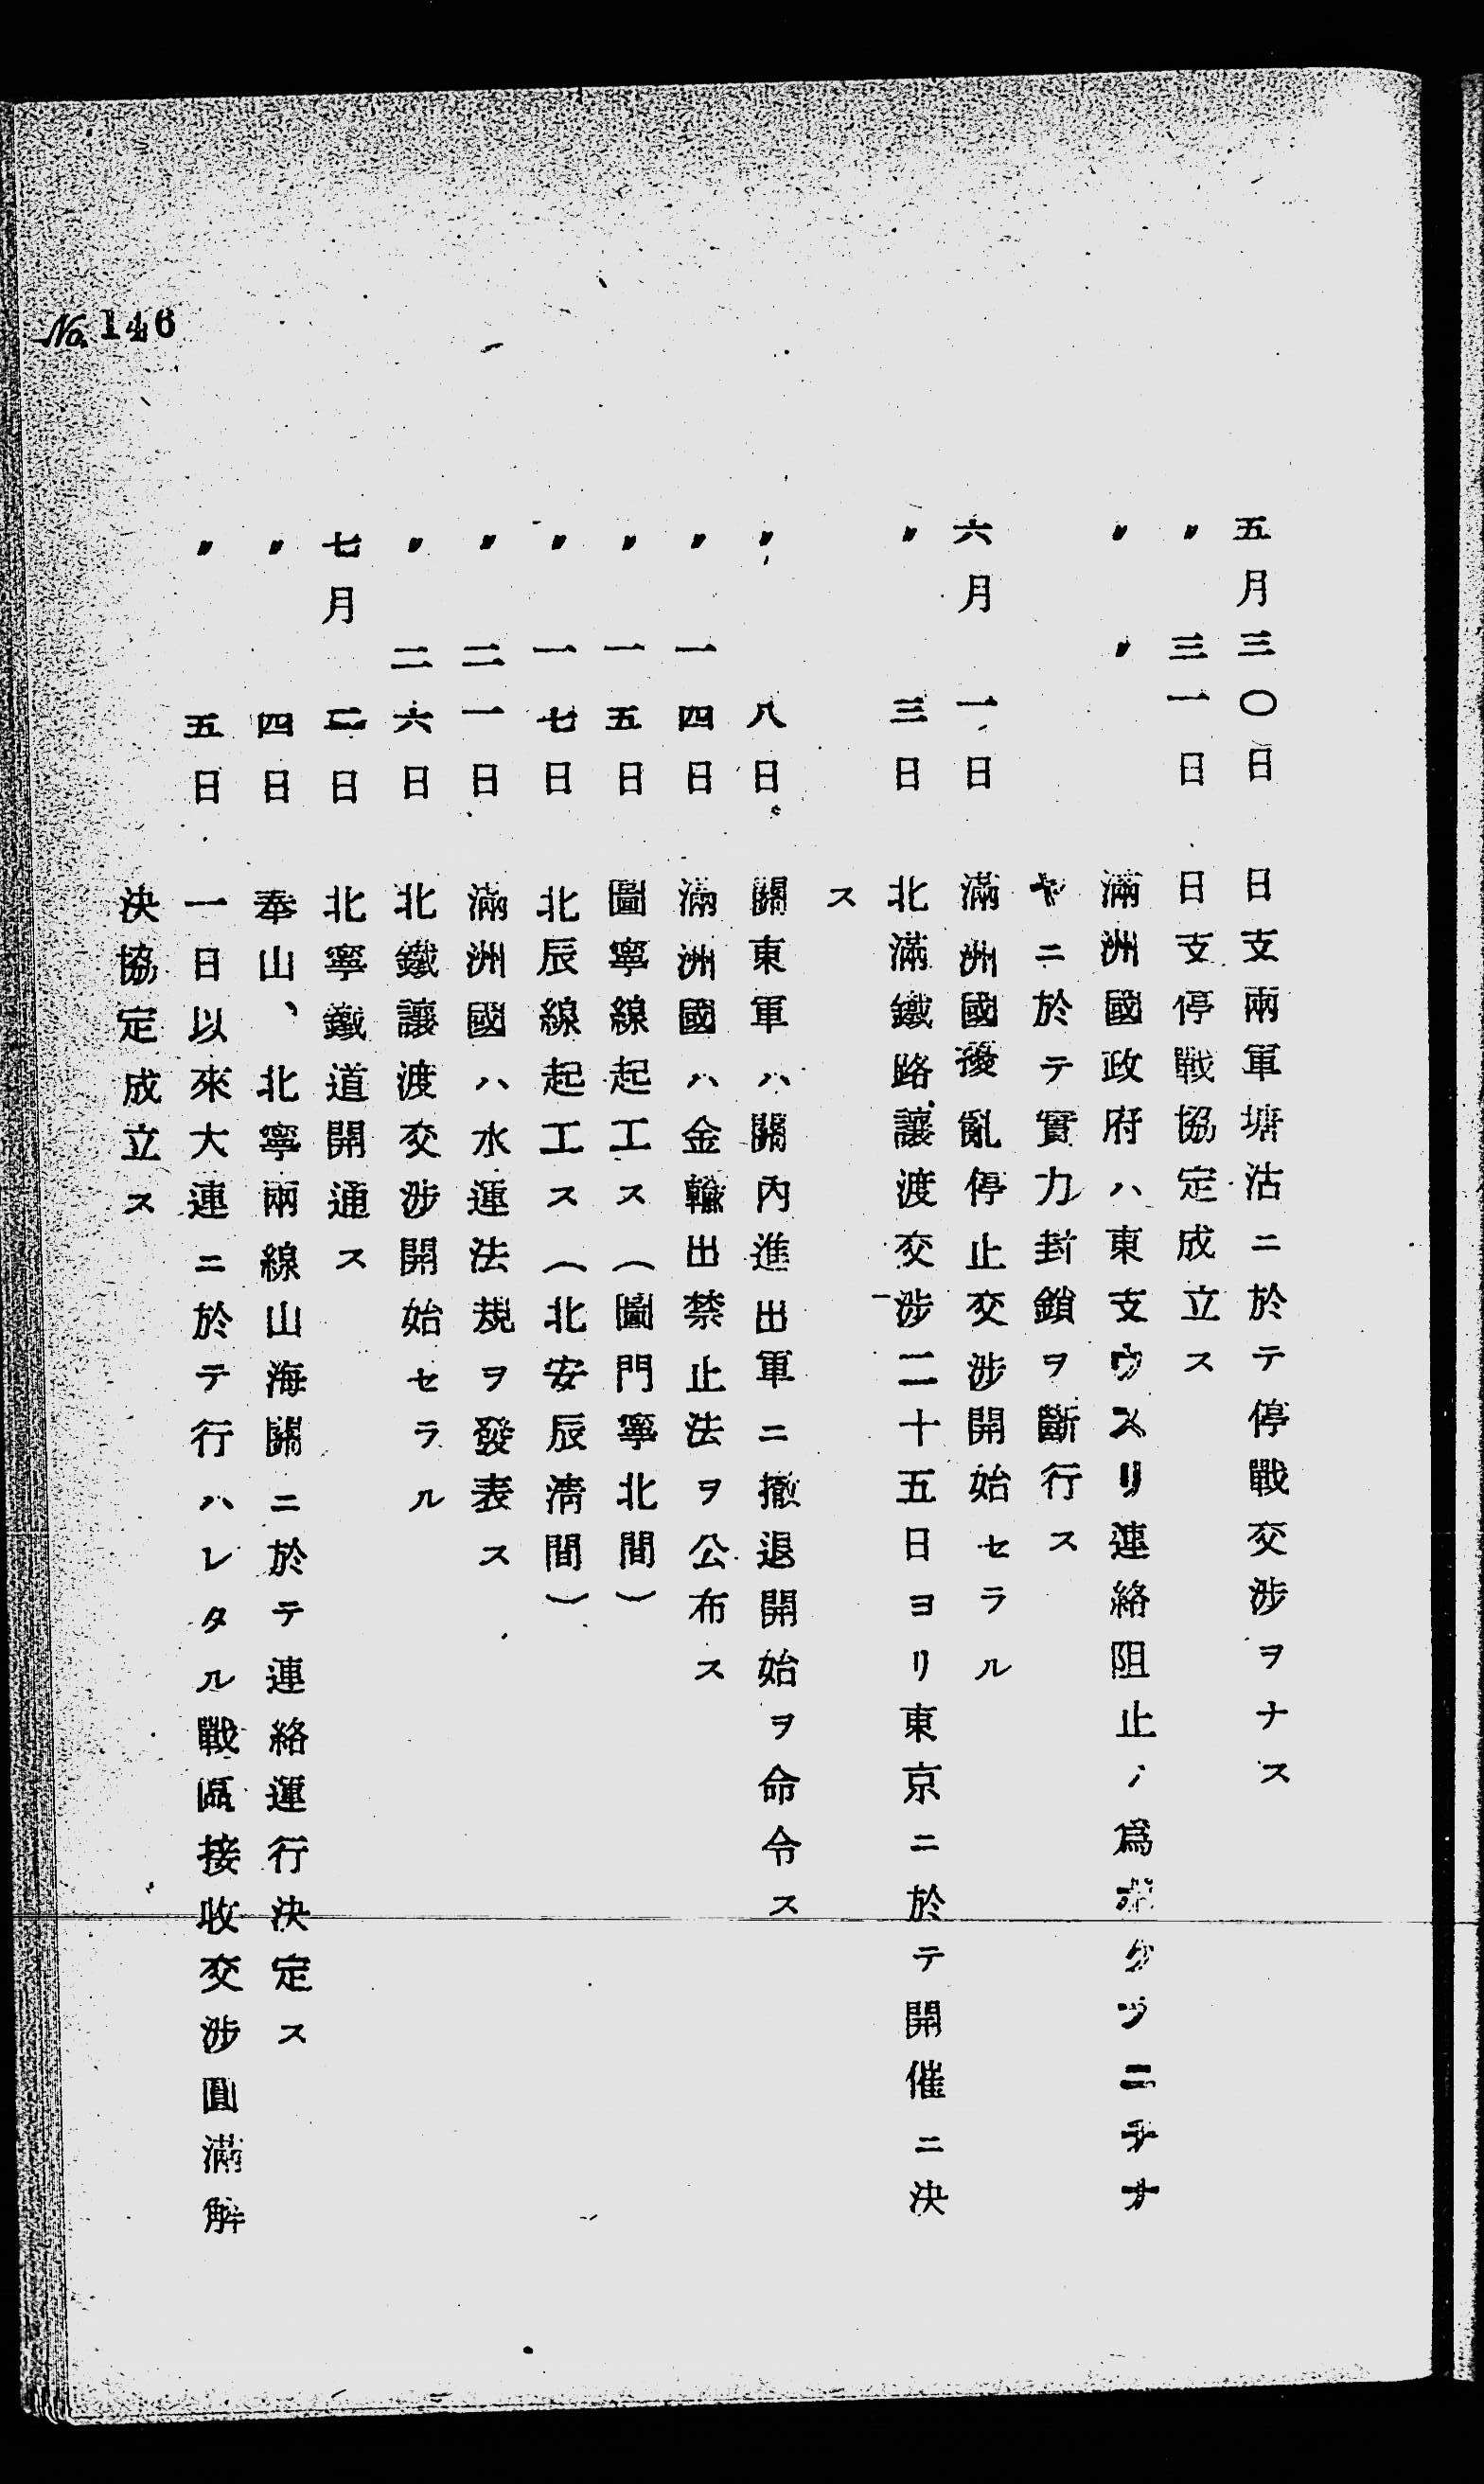 五月三〇日　日支兩軍塘沽ニ於テ停戰交渉ヲナス
〃三一日　日支停戰協定成立ス
〃〃　滿洲國政府ハ東支ウスリ連絡阻止ノ爲ポグヅニチナ
ヤニ於テ實力封鎖ヲ斷行ス
六月一日　滿洲國擾亂停止交渉開始セラル
〃三日　北滿鐵路讓渡交渉二十五日ヨリ東京ニ於テ開催ニ決
ス
〃八日　關東軍ハ關內進出軍ニ撤退開始ヲ命令ス
〃一四日　滿洲國ハ金輸出禁止法ヲ公布ス
〃一五日　圖寧線起工ス（圖門寧北間）
〃一七日　北辰線起工ス（北安辰淸間）
〃二一日　滿洲國ハ水運法規ヲ發表ス
〃二六日　北鐵讓渡交涉開始セラル
七月二日　北寧鐵道開通ス
〃四日　奉山、北寧兩線山海關ニ於テ連絡運行決定ス
〃五日　一日以來大連ニ於テ行ハレタル戰區接收交涉圓滿解
決協定成立ス
No. 146